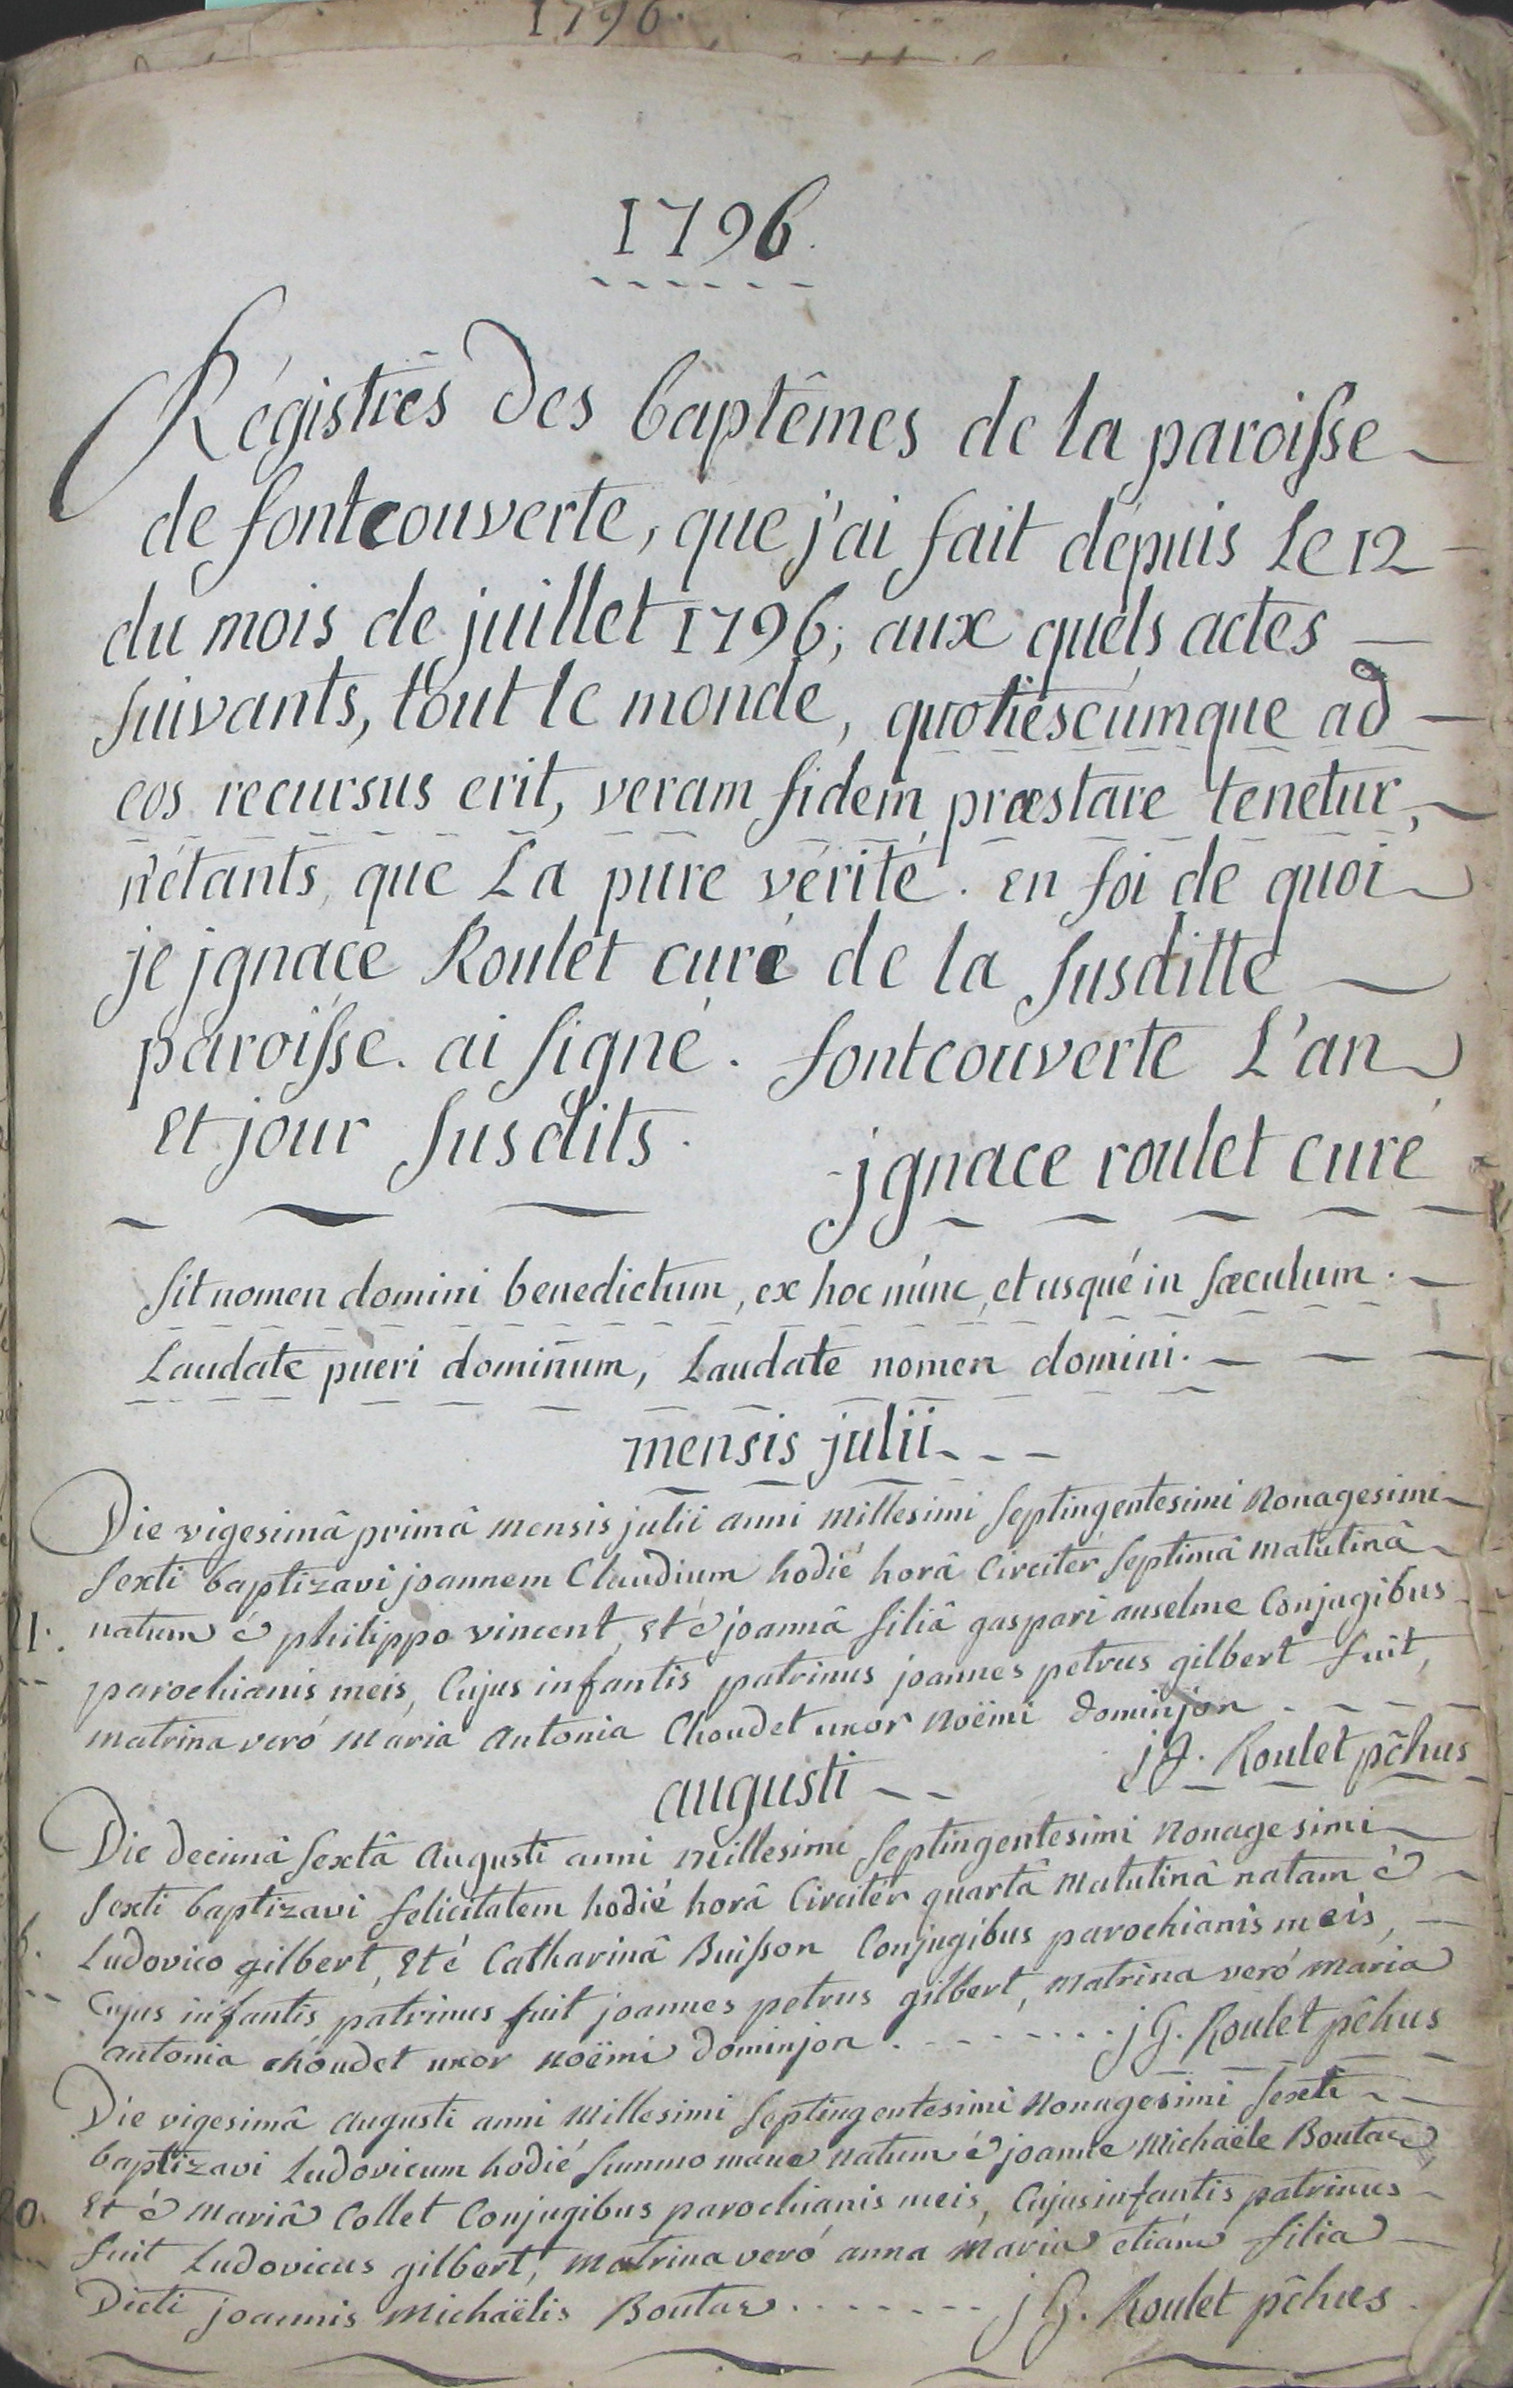 1796.
1796.
Régistres des baptêmes de la paroisse
de fontcouverte, que j'ai fait dépuis Le 12
du mois de juillet 1796; aux quels actes
suivants, tout le monde, quotiescúmque ad
eos recursus erit, veram fidem præstare tenetur,
n'étants, que La pure vérité. en foi de quoi
je jgnace Roulet curé de la susditte
paroisse. ai signé. fontcouverte L'an
Et jour susdits.
jgnace roulet curé
Sit nomen domini benedictum, ex hoc núnc, et usqué in sæculum.
Laudate pueri dominum, Laudate nomen domini.
mensis julii
Die vigesimâ primâ mensis julii anni millesimi septingentesimi nonagesimi
sexti baptizavi joannem Claudium hodié horâ Circitér septimâ matutinâ
21. natum é philippo vincent, Et é joannâ filiâ gaspari anselme Conjugibus
parochianis meis, Cujus infantis patrinus joannes petrus gilbert fuit,
matrina veró Maria Antonia Choudet uxor Noëmi dominjon
jg. Roulet pc̃hus
augusti
Die decimâ sextâ Augusti anni millesimi septingentesimi nonagesimi
sexti baptizavi felicitatem hodié horâ Circitér quartâ matutinâ natam é
6. Ludovico gilbert, Et é Catharinâ Buisson Conjugibus parochianis meis,
Cujus infantis patrinus fuit joannes petrus gilbert, matrina veró maria
antonia choudet uxor noëmi dominjon . jG. Roulet pc̃hus
Die vigesimâ augusti anni millesimi septingentesimi nonagesimi sexti
baptizavi Ludovicum hodié summo mane natum é joanne Michaële Boutaz
20. Et é Mariâ Collet Conjugibus parochianis meis, Cujus infantis patrinus
fuit Ludovicus gilbert, matrina veró anna maria etiám filia
Dicti joannis Michaëlis Boutaz jG. Roulet pc̃hus